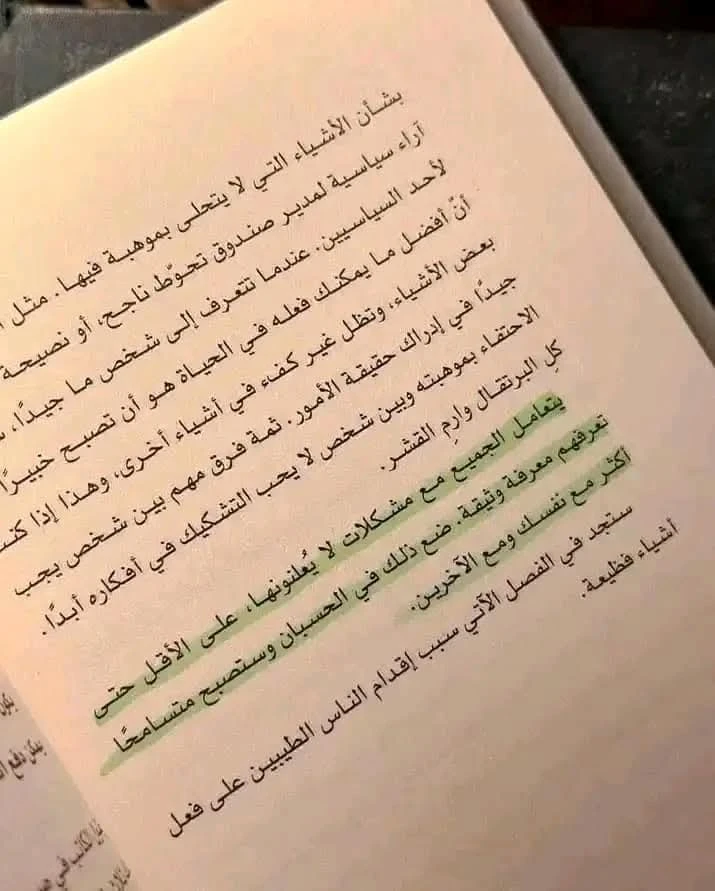 بشأن الأشياء التي لا يتحلى بموهبة فيها. مثل
آراء سياسية لمدير صندوق تحوّط ناجح، أو نصيحة
لأحد السياسيين. عندما تتعرف إلى شخص ما جيدًا،
أنّ أفضل ما يمكنك فعله في الحياة هو أن تصبح خبيرًا
بعض الأشياء، وتظل غير كفء في أشياء أخرى، وهذا إذا
جيدًا في إدراك حقيقة الأمور. ثمة فرق مهم بين شخص يجب
الاحتفاء بموهبته وبين شخص لا يجب التشكيك في أفكاره أبدًا.
كلِ البرتقال وارمِ القشر.
يتعامل الجميع مع مشكلات لا يُعلنونها، على الأقل حتى
تعرفهم معرفة وثيقة. ضع ذلك في الحسبان وستصبح متسامحًا
أكثر مع نفسك ومع الآخرين.
ستجد في الفصل الآتي سبب إقدام الناس الطيبين على فعل
أشياء فظيعة.